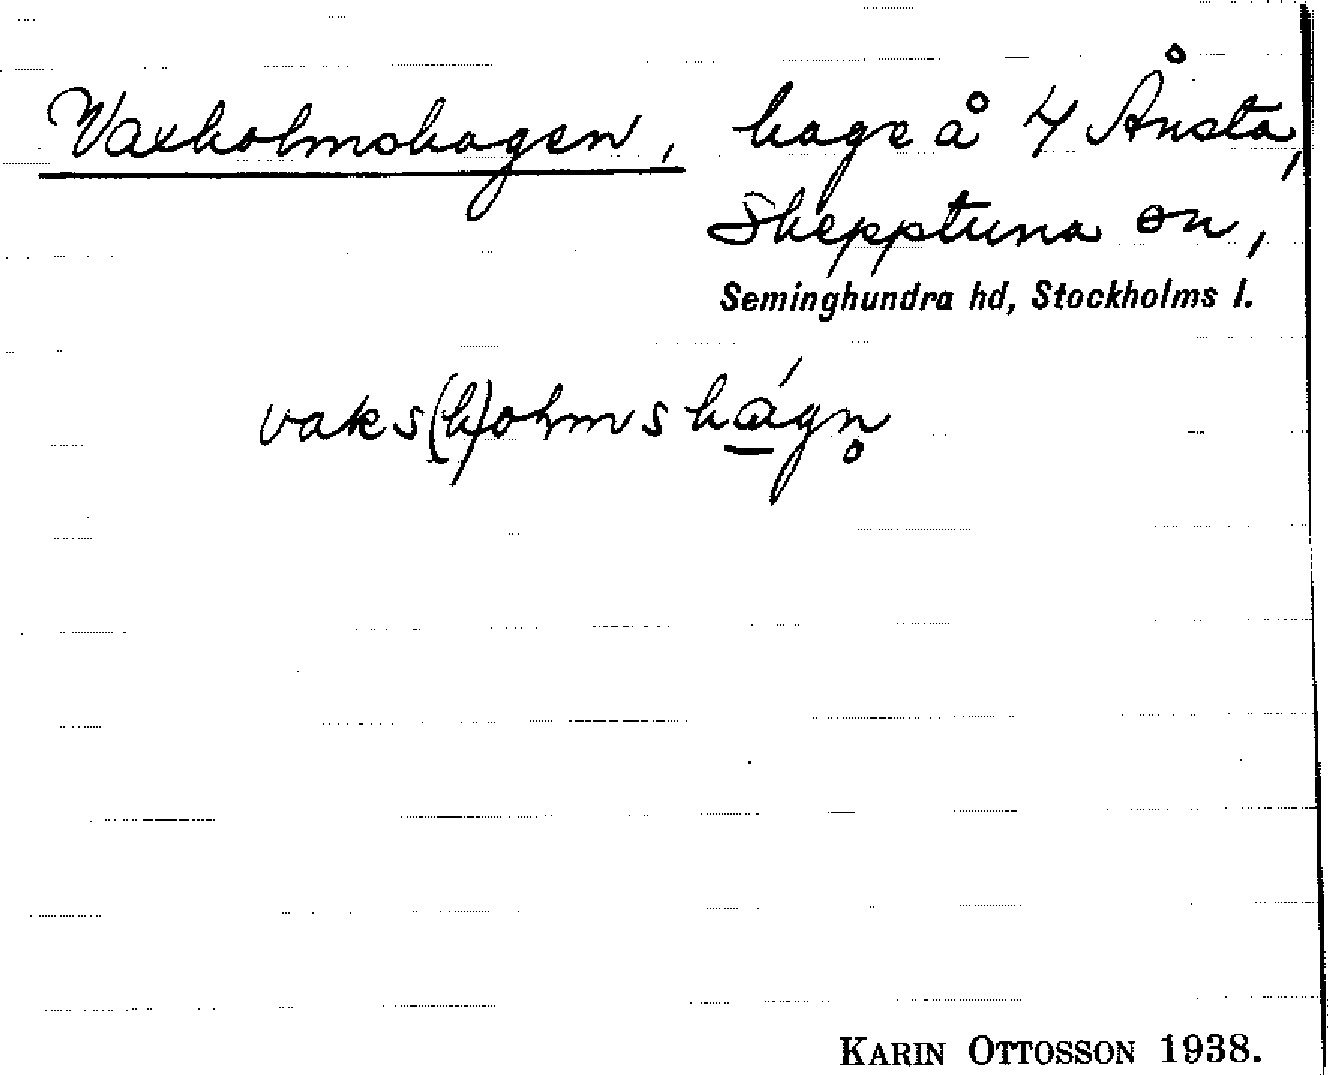 Vaxholmshagen, hage å 4 Ånsta,
Skepptuna sn,
Seminghundra hd, Stockholms l.
vaks(h)olmshågn̥
KARIN OTTOSSON 1938.